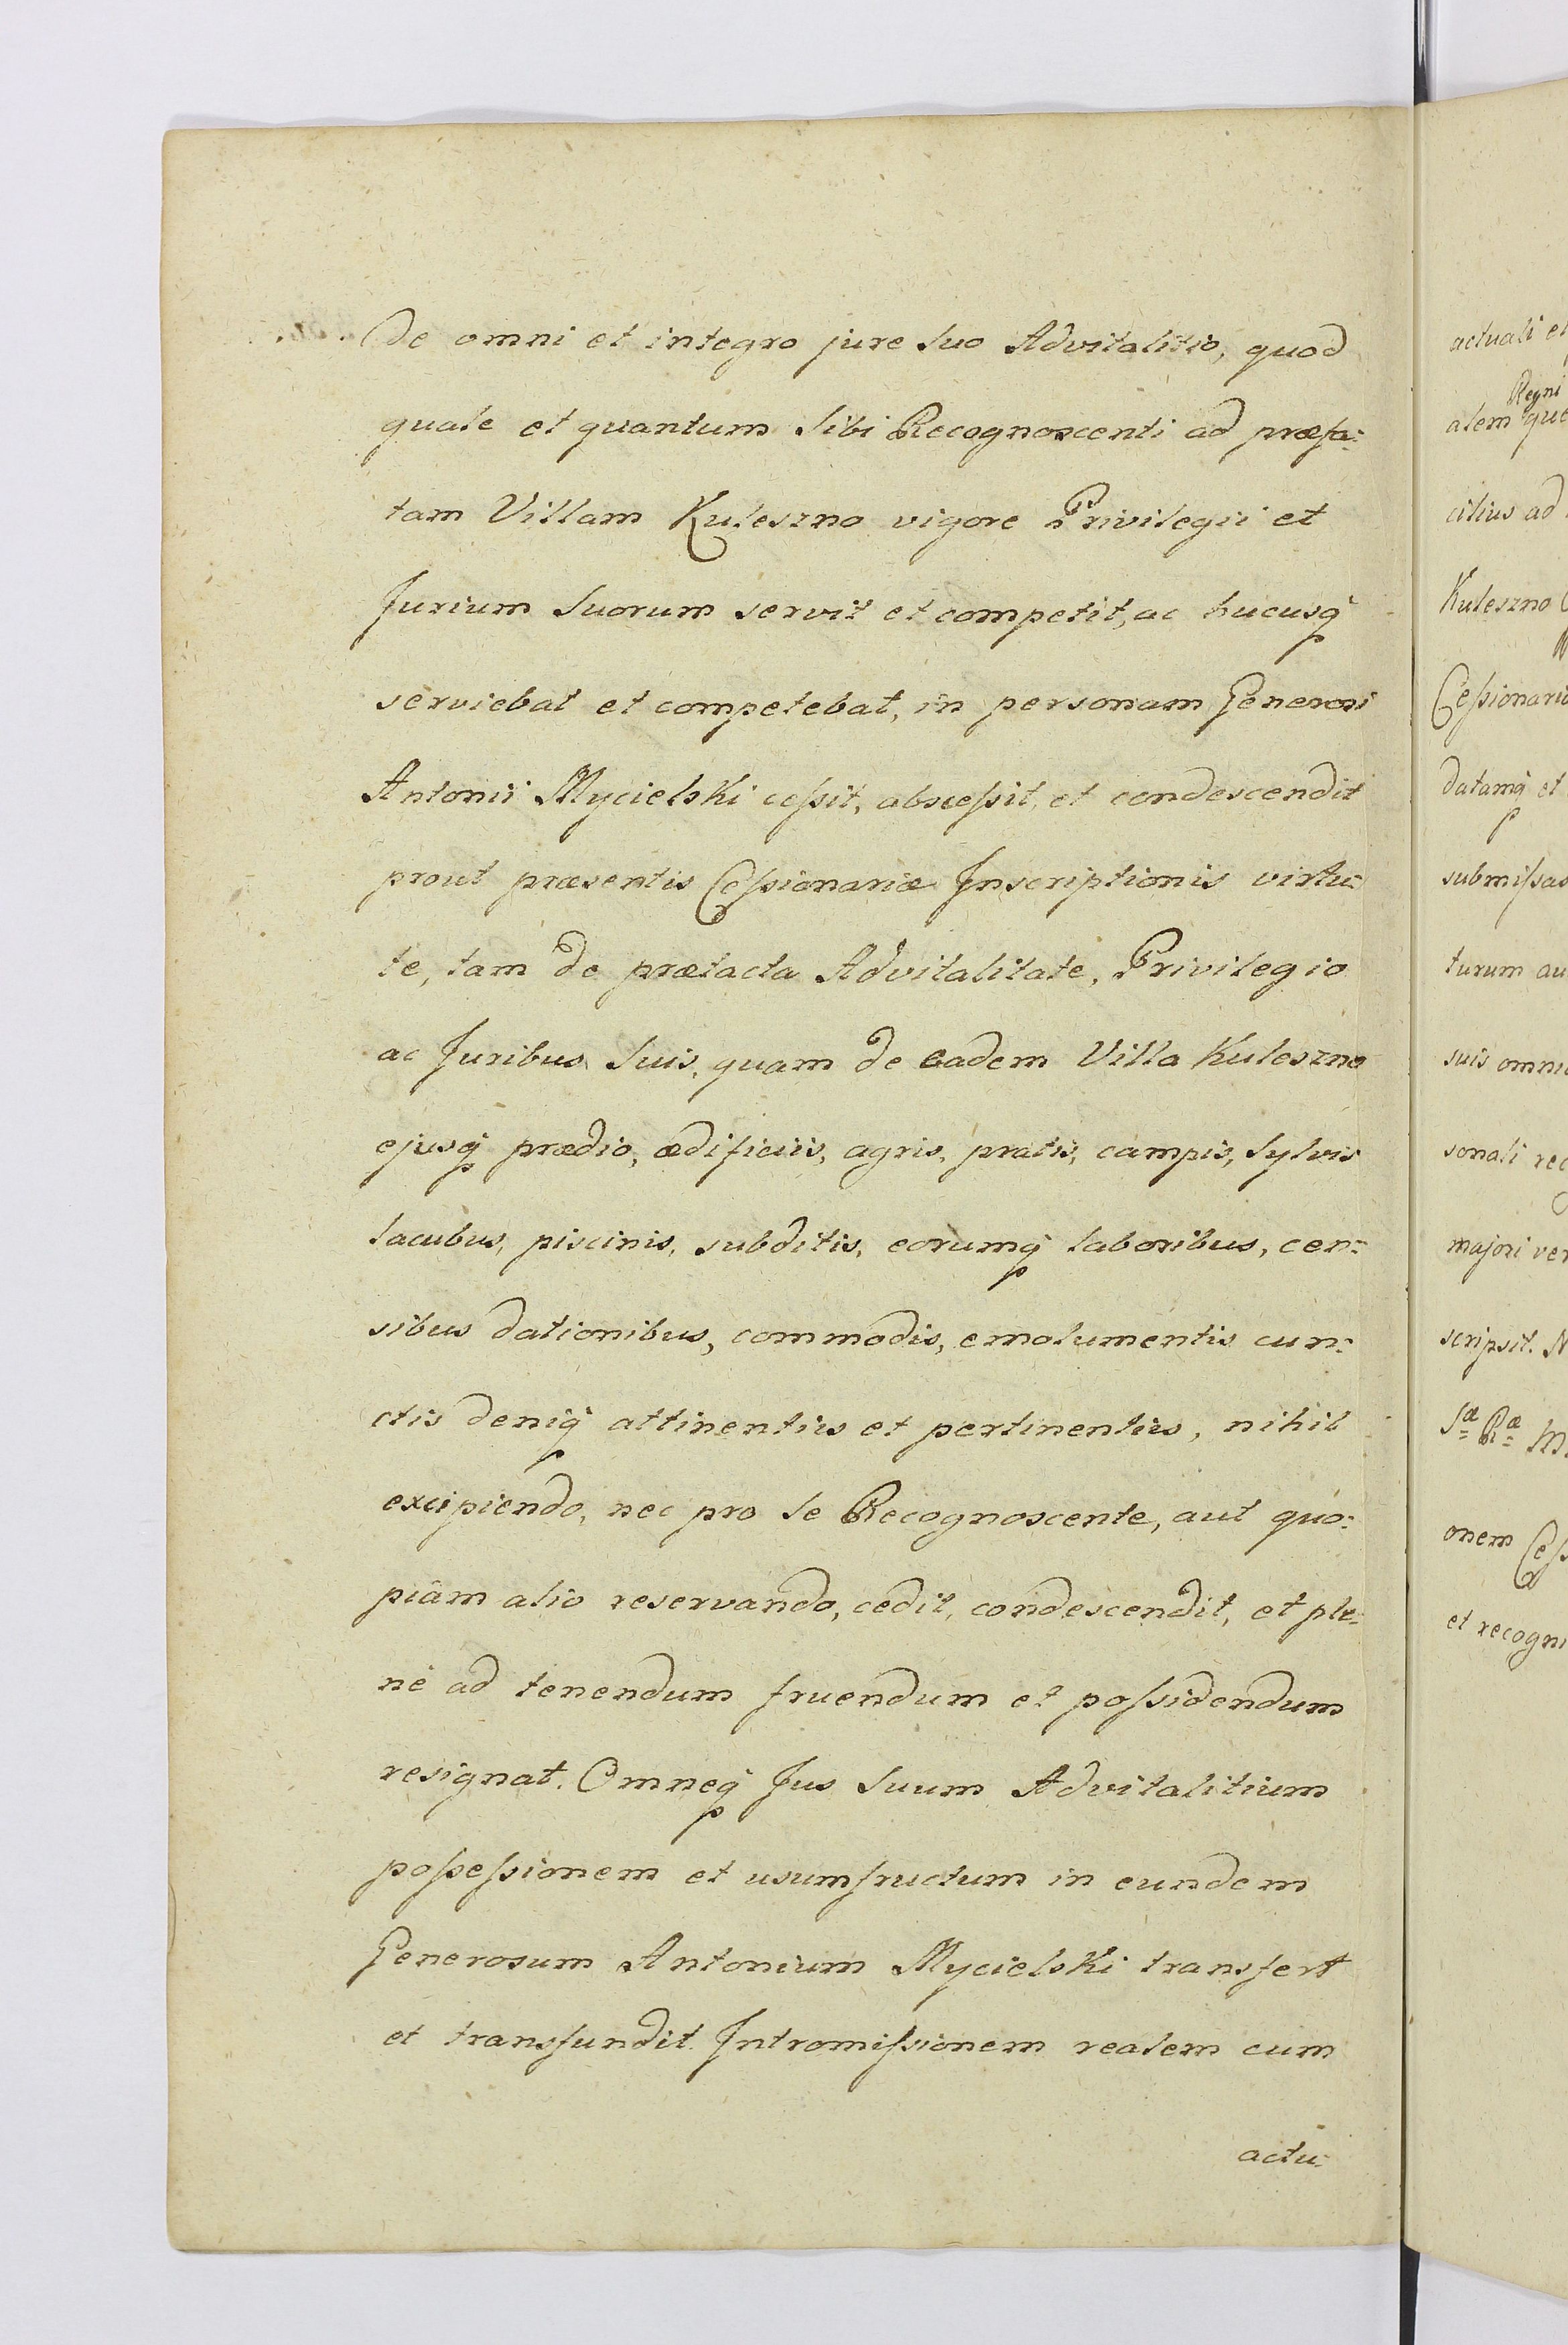 De omni et integro jure suo Advitalitio, quod
quale et quantum sibi Recognoscenti ad præfa:
tam Villam Kuleszno vigore Privilegii et
Jurium Suorum servit et competit, ac hucusq
serviebat et competebat, in personam Generosi
Antonii Mycielski cessit, abscessit, et condescendit
prout præsentis Cessionariæ Inscriptionis virtu:
te, tam de prætacta Advitalitate, Privilegio
ac Juribus Suis, quam de eadem Villa Kuleszno
ejusq prædio, ædificiis, agris, pratis, campis, Sylvis
lacubus, piscinis, subditis, eorumq laboribus, cen:
sibus dationibus, commodis, emolumentis cun:
ctis deniq attinentiis et pertinentiis, nihil
excipiendo, nec pro se Recognoscente, aut quo:
piam alio reservando, cedit, condescendit, et ple:
ne ad tenendum fruendum et possidendum
resignat. Omneq Jus Suum Advitalitium
possessionem et usumfructum in eundem
Generosum Antonium Mycielski transfert
et transfundit. Intromissionem realem cum
actu:
actuali et
Regni
alem que
cilius ad
Kuleszno
Cessionarii
datamq et
submissas
turum au
suis omni
sonali rec
majori ver
scripsit. N
Sæ Ræ M
onem Cess
et recogni